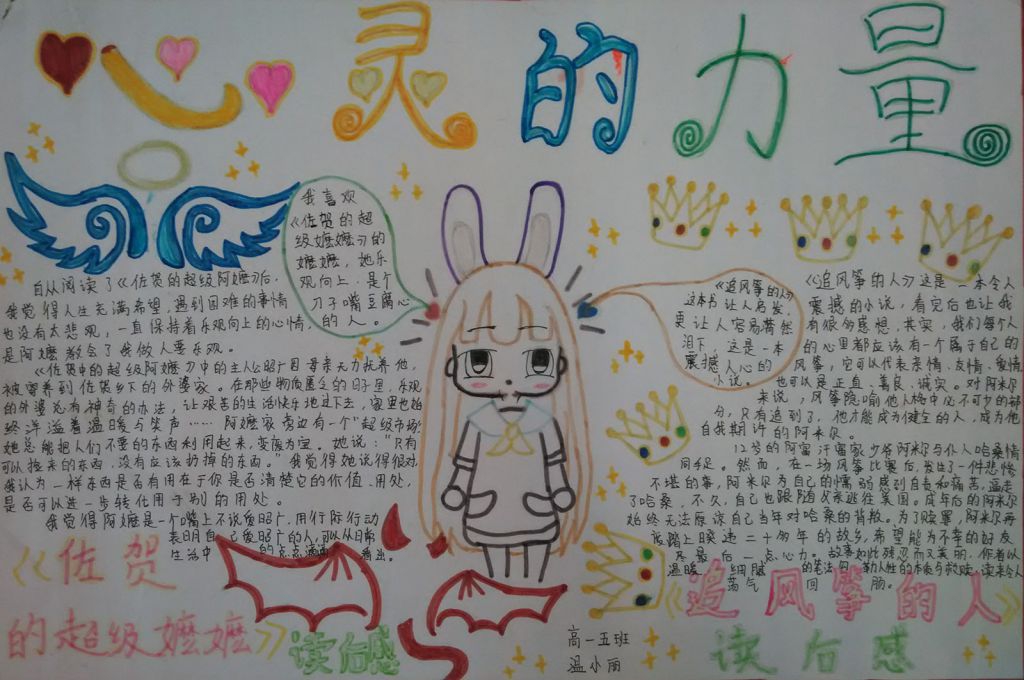 心灵的力量
我喜欢
《佐贺的超
级嬷嬷》的
嬷嬷，她乐
观向上，是个
刀子嘴豆腐心
的人。
自从阅读了《佐贺的超级阿嬷》后，
我觉得人生充满希望，遇到困难的事情
也没有太悲观，一直保持着乐观向上的心情，
是阿嬷教会了我做人要乐观。
《佐贺的超级阿嬷》中的主人公昭广因母亲无力抚养他，
被寄养到佐贺乡下的外婆家。在那些物质匮乏的日子里，乐观
的外婆总有神奇的办法，让艰苦的生活快乐地过下去，家里也始
终洋溢着温暖与笑声……阿嬷家旁边有一个"超级市场"
她总能把人们不要的东西利用起来，变废为宝。她说："只有
可以捡来的东西，没有应该扔掉的东西。"我觉得她说得很对，
我认为一样东西是否有用在于你是否清楚它的价值、用处，
是否可以进一步转化用于别的用处。
我觉得阿嬷是一个嘴上不说爱昭广，用行际行动
表明自己爱昭广的人，可以从日常
生活中 的点点滴滴 看出。
《佐贺
的超级嬷嬷》
读后感
《追风筝的人》
这本书让人启发，
更让人容易潸然
泪下，这是一本
震撼人心的
小说。
《追风筝的人》这是一本令人
震撼的小说，看完后也让我
有很多感想，其实，我们每个人
的心里都应该有一个属于自己的
风筝，它可以代表亲情、友情、爱情，
也可以是正直、善良、诚实。对阿米尔
来说，风筝隐喻他人格中必不可少的部
分，只有追到了，他才能成为健全的人，成为他
自我期许的阿米尔。
12岁的阿富汗富家少爷阿米尔与仆人哈桑情
同手足。然而，在一场风筝比赛后，发生了一件悲惨
不堪的事，阿米尔为自己的懦弱感到自责和痛苦，逼走
了哈桑，不久，自己也跟随父亲逃往美国。成年后的阿米尔
始终无法原谅自己当年对哈桑的背叛。为了赎罪，阿米尔再
度踏上暌违二十多年的故乡，希望能为不幸的好友
尽最后一点心力。故事如此残忍而又美丽，作者以
温暖 细腻 的笔法勾勒人性的本质与救赎，读来令人
荡气 回 肠。
《追风筝的人》
读后感
高一五班
温小丽